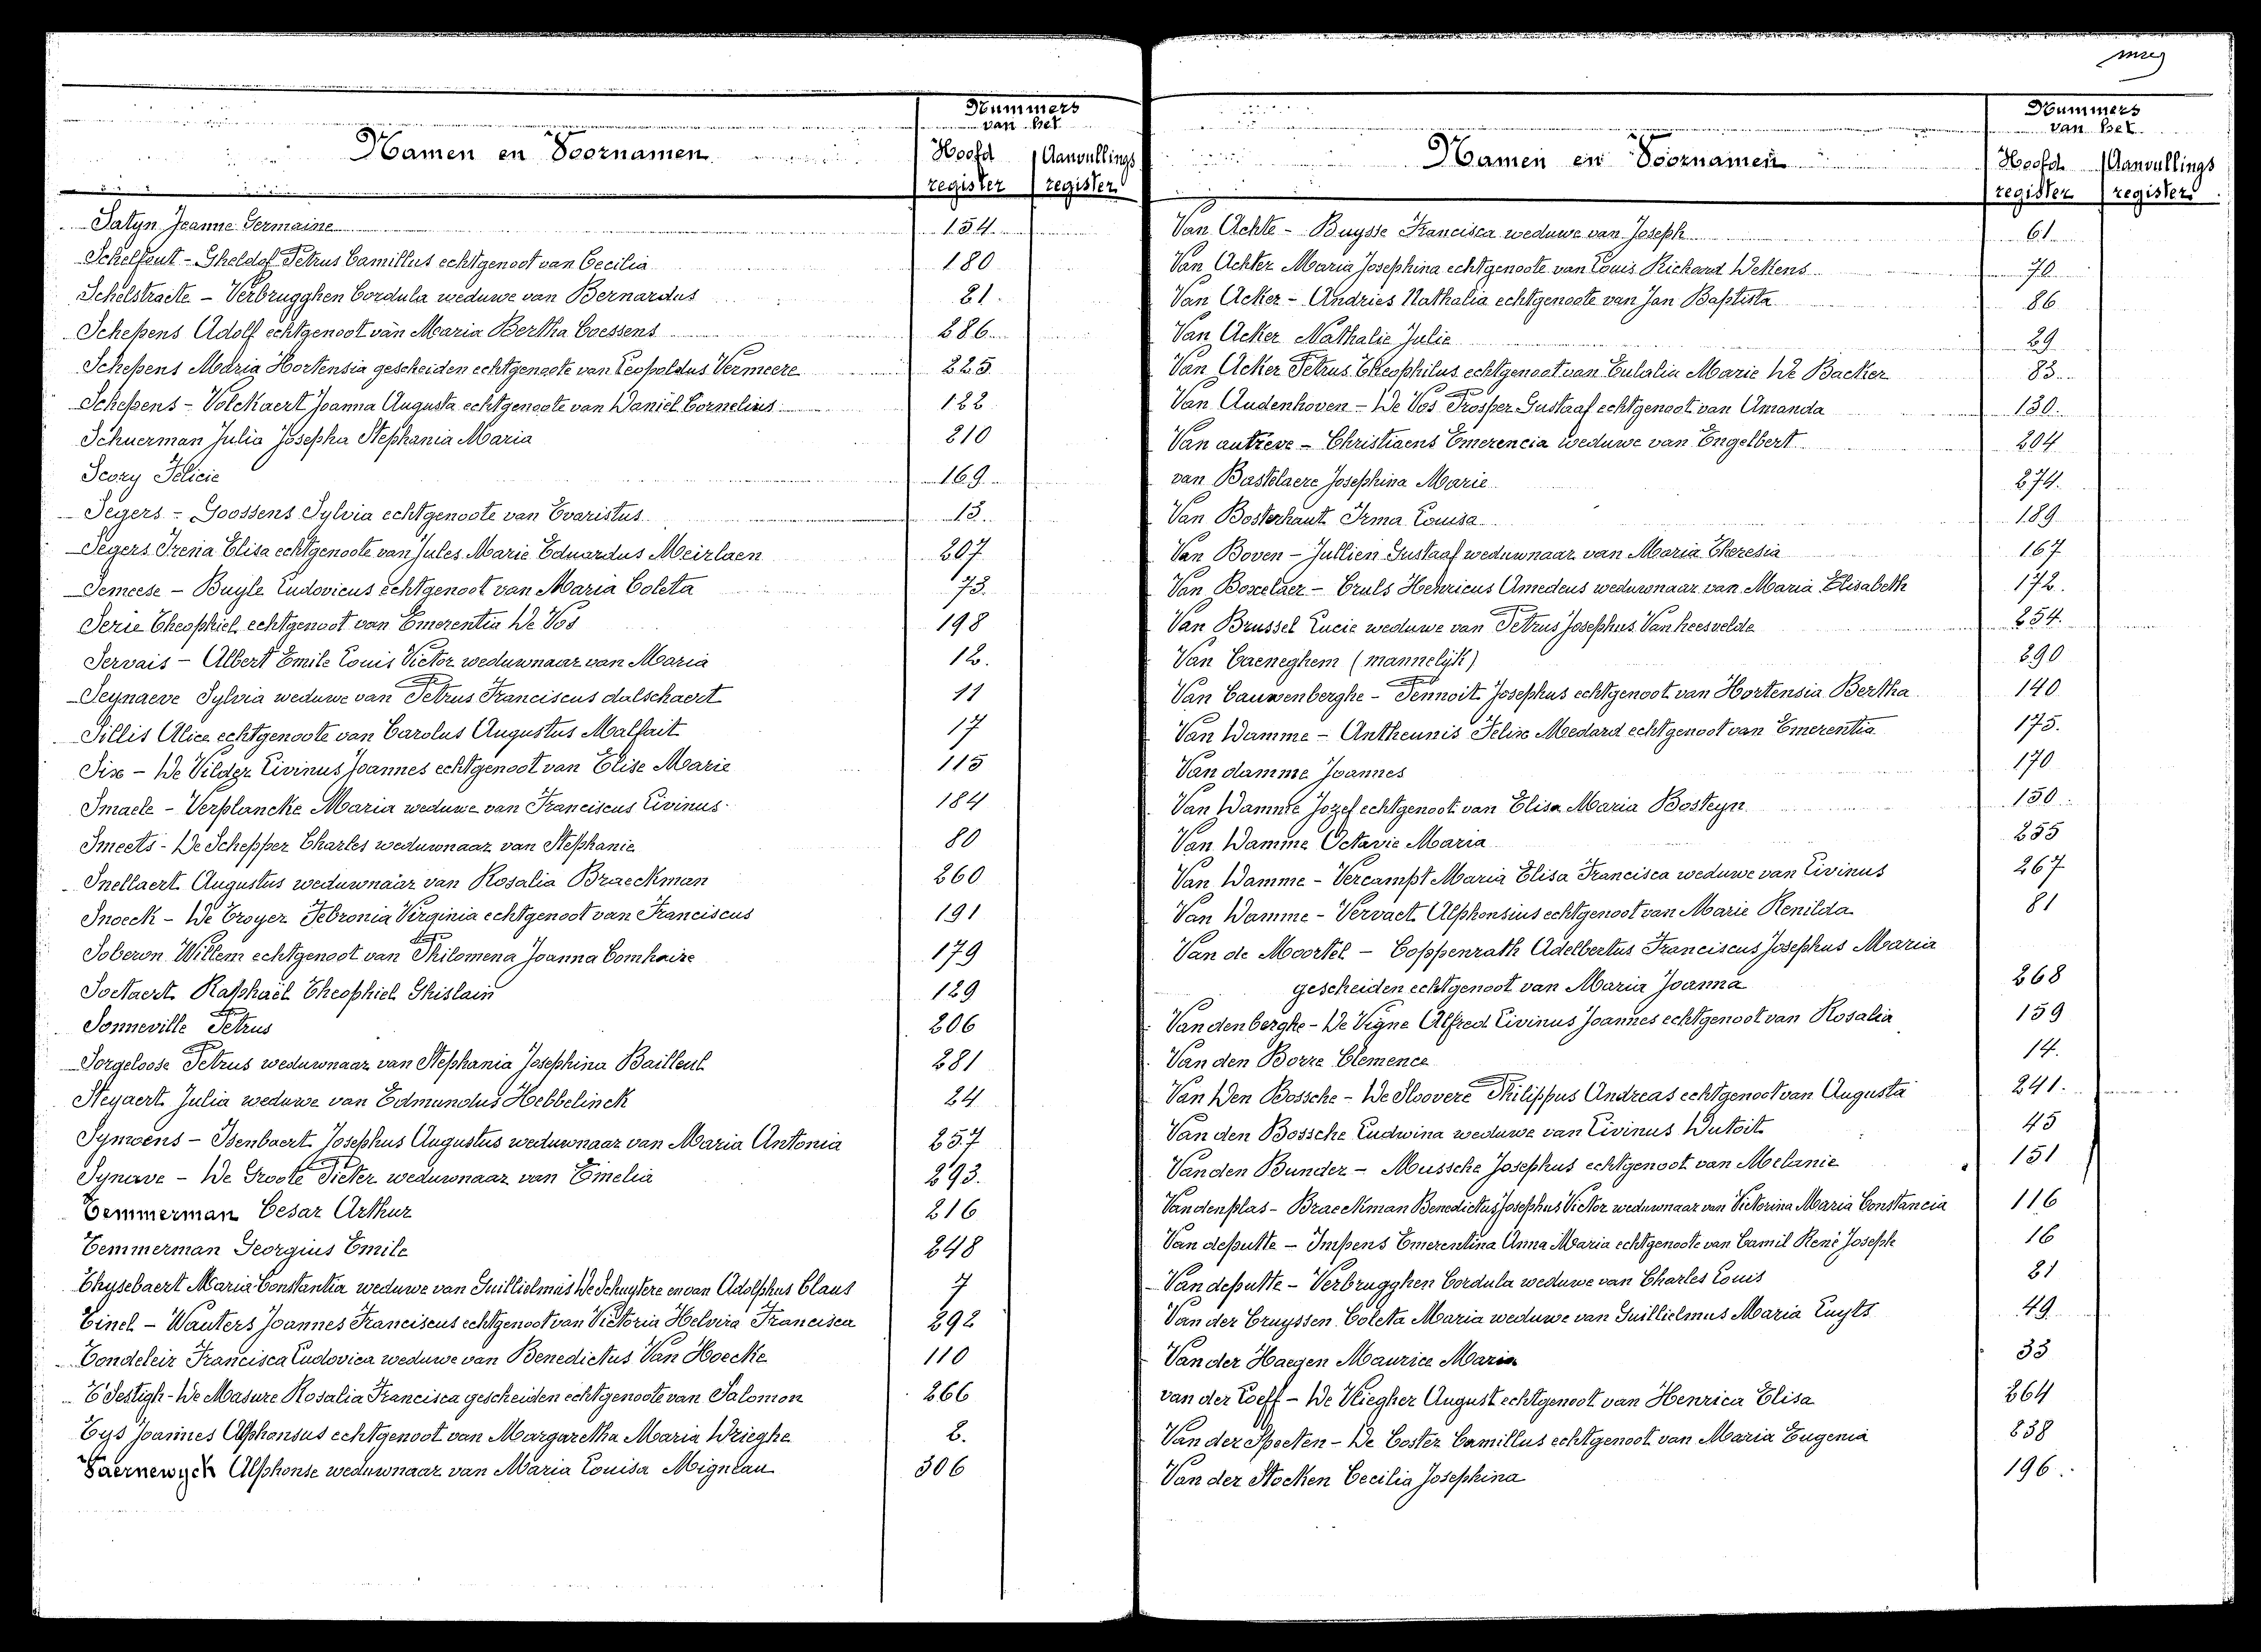 Namen en Voornamen
Nummers
van het
Hoofd register
Aanvullings register
Satyn Jeanne Germaine 154.
Schelfout - Gheldof Petrus Camillus echtgenoot van Cecilia 180
Schelstraete - Verbrugghen Cordula weduwe van Bernardus 21.
Schepens Adolf echtgenoot van Maria Bertha Coessens 286
Schepens Maria Hortensia gescheiden echtgenoote van Leopoldus Vermeere 225
Schepens - Volckaert Joanna Augusta echtgenoote van Daniël Cornelius 122
Schuerman Julia Josepha Stephania Maria 210
Scory Felicie 169
Segers - Goossens Sylvia echtgenoote van Evaristus 13.
Segers Irena Elisa echtgenoote van Jules Marie Eduardus Meirlaen 207
Semeese - Buyle Ludovicus echtgenoot van Maria Coleta 73.
Serie Theophiel echtgenoot van Emerentia De Vos 198
Servais - Albert Emile Louis Victor weduwnaar van Maria 12.
Seynaeve Sylvia weduwe van Petrus Franciscus dalschaert 11
Sillis Alice echtgenoote van Carolus Augustus Malfait 17
Six - De Vilder Livinus Joannes echtgenoot van Elise Marie 115
Smaele - Verplancke Maria weduwe van Franciscus Livinus 184
Smeets - De Schepper Charles weduwnaar van Stephanie 80
Snellaert Augustus weduwnaar van Rosalia Braeckman 260
Snoeck - De Troyer Febronia Virginia echtgenoot van Franciscus 191
Soberon Willem echtgenoot van Philomena Joanna Comhaire 179
Soetaert Raphaël Theophiel Ghislain 129
Sonneville Petrus 206
Sorgeloose Petrus weduwnaar van Stephania Josephina Bailleul 281
Steyaert Julia weduwe van Edmundus Hebbelinck 24
Symoens - Isenbaert Josephus Augustus weduwnaar van Maria Antonia 257
Synave - De Groote Pieter weduwnaar van Emelia 293.
Temmerman Cesar Arthur 216
Temmerman Georgius Emile 248
Thysebaert Maria Constantia weduwe van Guillielmus De Schuytere en van Adolphus Claus 7
Tinel - Wauters Joannes Franciscus echtgenoot van Victoria Helvira Francisca 292
Tondeleir Francisca Ludovica weduwe van Benedictus Van Hoecke 110
T'Sestigh - De Masure Rosalia Francisca gescheiden echtgenoote van Salomon 266
Tys Joannes Alphonsus echtgenoot van Margaretha Maria Drieghe 2.
Vaernewyck Alphonse weduwnaar van Maria Louisa Migneau 306
Namen en Voornamen
Nummers
van het
Hoofd register
Aanvullings register
Van Achte - Buysse Francisca weduwe van Joseph 61
Van Achter Maria Josephina echtgenoote van Louis Richard Dekens 70
Van Acker - Andries Nathalia echtgenoote van Jan Baptista 86
Van Acker Nathalie Julie 29
Van Acker Petrus Theophilus echtgenoot van Eulalia Marie De Backer 83
Van Audenhoven - De Vos Prosper Gustaaf echtgenoot van Amanda 130.
Van autreve - Christiaens Emerencia weduwe van Engelbert 204
van Bastelaere Josephina Marie 274.
Van Bosterhaut Irma Louisa 189
Van Boven - Jullien Gustaaf weduwnaar van Maria Theresia 167
Van Boxelaer - Cruls Henricus Amedeus weduwnaar van Maria Elisabeth 172.
Van Brussel Lucie weduwe van Petrus Josephus Van heesvelde 254.
Van Caeneghem (mannelijk) 290
Van Cauwenberghe - Pennoit Josephus echtgenoot van Hortensia Bertha 140
Van Damme - Antheunis Felix Medard echtgenoot van Emerentia 175.
Van damme Joannes 170
Van Damme Jozef echtgenoot van Elisa Maria Bosteyn 150.
Van Damme Octavie Maria 255
Van Damme - Vercampt Maria Elisa Francisca weduwe van Livinus 267
Van Damme - Vervaet Alphonsius echtgenoot van Marie Renilda 81
Van de Moortel - Coppenrath Adelbertus Franciscus Josephus Maria
gescheiden echtgenoot van Maria Joanna 268
Van den berghe - De Vigne Alfred Livinus Joannes echtgenoot van Rosalia 159
Van den Borre Clemence 14.
Van Den Bossche - De Sloovere Philippus Andreas echtgenoot van Augusta 241.
Van den Bossche Ludwina weduwe van Livinus Dutoit 45
Van den Bunder - Mussche Josephus echtgenoot van Melanie 151
Van den plas - Braeckman Benedictus Josephus Victor weduwnaar van Victorina Maria Constancia 116
Van de putte - Impens Emerentina Anna Maria echtgenoote van Camil René Joseph 16
Van de putte - Verbrugghen Cordula weduwe van Charles Louis 21
Van der Cruyssen Coleta Maria weduwe van Guillielmus Maria Luyts 49
Van der Haegen Maurice Maria 33
van der Loeff - De Vliegher August echtgenoot van Henrica Elisa 264
Van der Specten - De Coster Camillus echtgenoot van Maria Eugenia 238
Van der Stocken Cecilia Josephina 196.